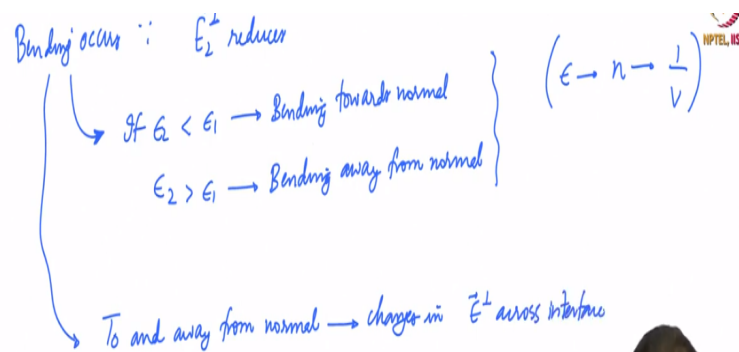 Bending occurs ∵ E₂^⊥ reduces
NPTEL, IIS
(ϵ → n → 1/v)
If ϵ₂ < ϵ₁ → Bending towards normal
ϵ₂ > ϵ₁ → Bending away from normal
To and away from normal → changes in E⃗^⊥ across interface